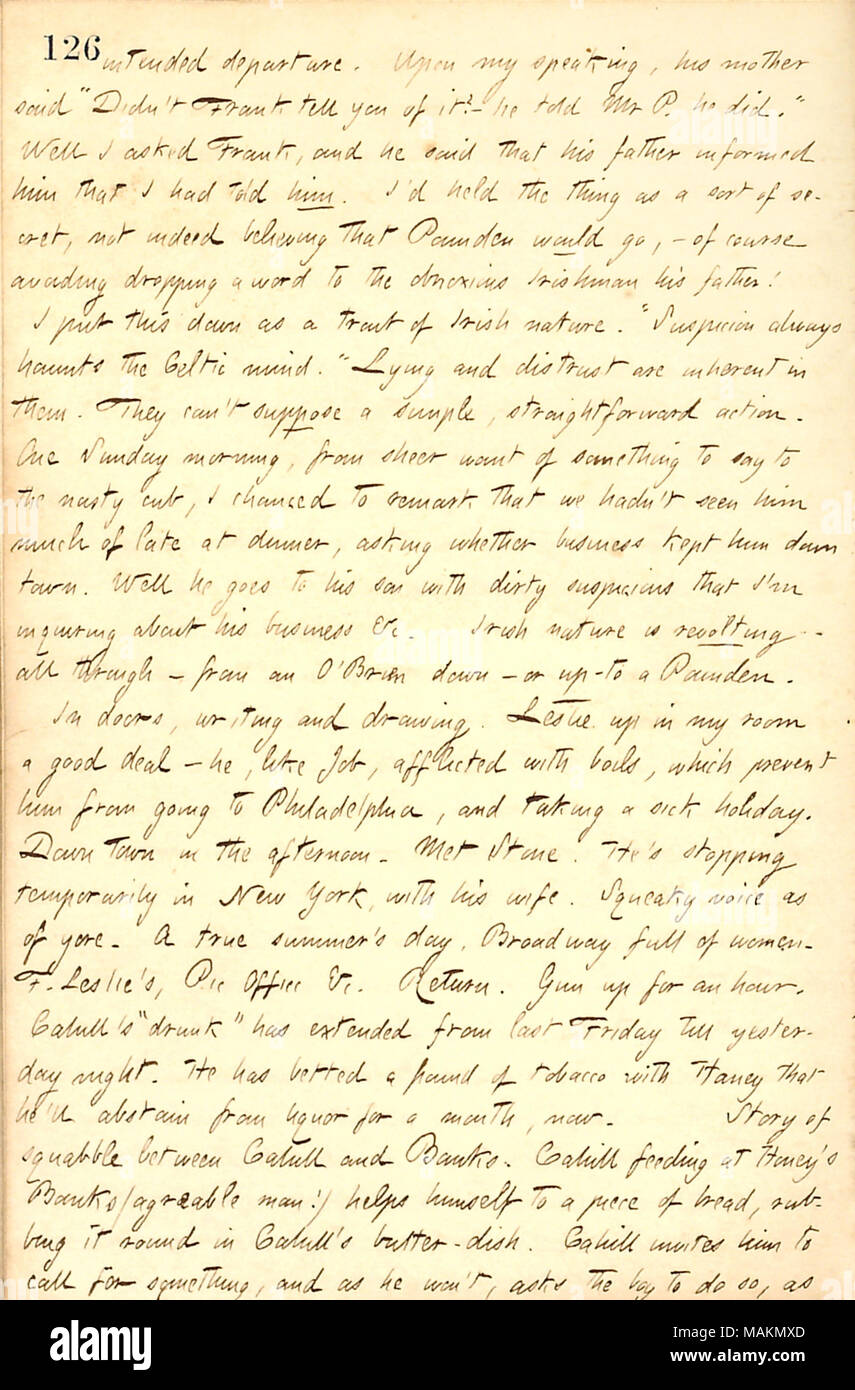 126
intended departure. Upon my speaking, his mother
said "Didn't Frank tell you of it? — he told Mr P. he did."
Well I asked Frank, and he said that his father informed
him that I had told him. I'd held the thing as a sort of se-
cret, not indeed believing that Pounden would go, — of course
avoiding dropping a word to the obnoxious Irishman his father!
I put this down as a trait of Irish nature. "Suspicion always
haunts the Celtic mind." Lying and distrust are inherent in
them. They can't suppose a simple, straightforward action.
One Sunday morning, from sheer want of something to say to
the nasty cub, I chanced to remark that we hadn't seen him
much of late at dinner, asking whether business kept him down
town. Well he goes to his son with dirty suspicions that I'm
inquiring about his business &c. Irish nature is revolting
all through — from an O'Brien down — or up — to a Pounden.
In doors, writing and drawing. Leslie up in my room
a good deal — he, like Job, afflicted with boils, which prevent
him from going to Philadelphia, and taking a sick holiday.
Down town in the afternoon. Met Stone. He's stopping
temporarily in New York, with his wife. Squeaky voice as
of yore. A true summer's day, Broadway full of women.
F. Leslie's, Pic Office &c. Return. Gun up for an hour.
Cahill's "drunk" has extended from last Friday till yester-
day night. He has betted a pound of tobacco with Haney that
he'll abstain from liquor for a month, now. Story of
squabble between Cahill and Banks. Cahill feeding at Honey's
Banks (agreable man!) helps himself to a piece of bread, rub-
bing it round in Cahill's butter-dish. Cahill invites him to
call for something, and as he won't, asks the boy to do so, as
alamy
Image ID: MAKMXD
www.alamy.com